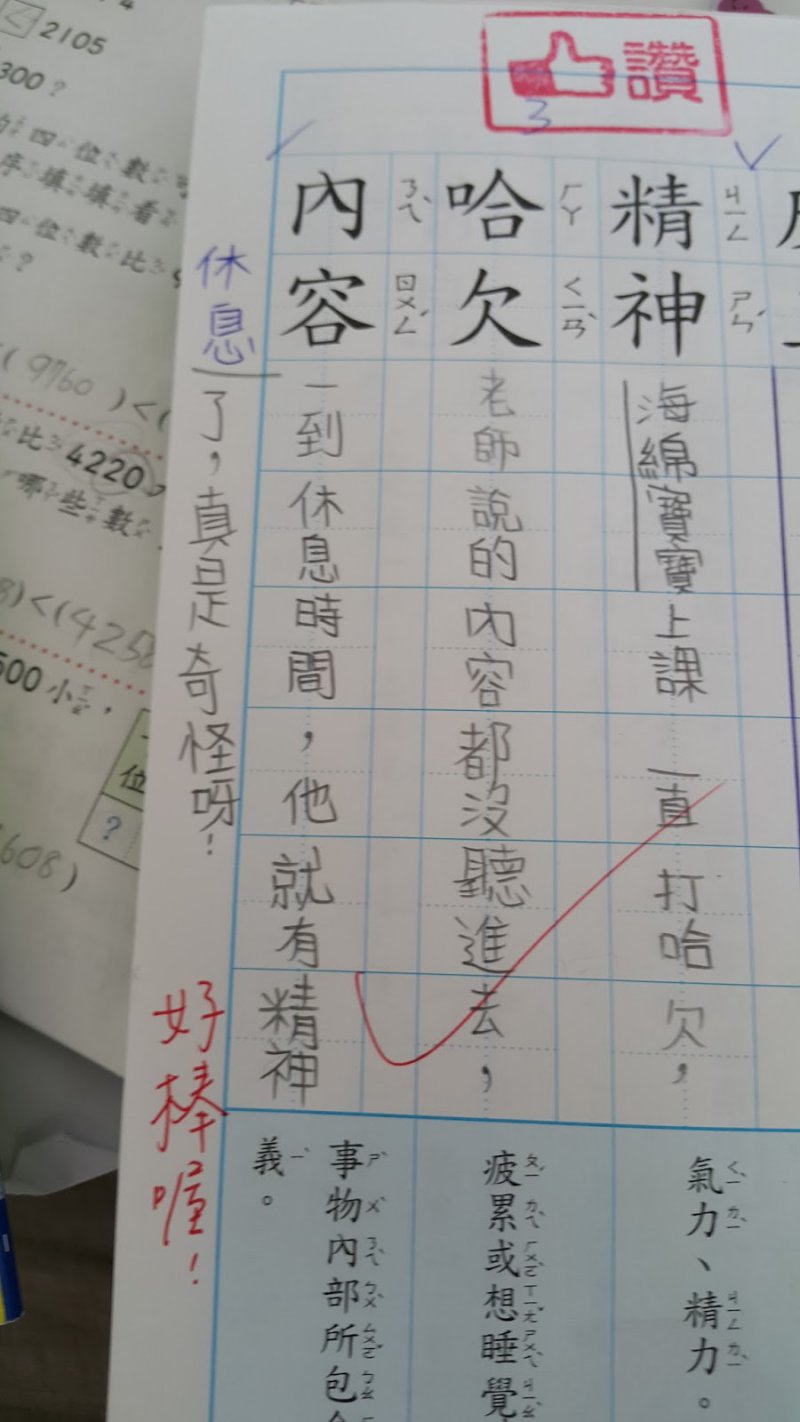 讚
3
精神
ㄐㄧㄥ
ㄕㄣˊ
海綿寶寶上課一直打哈欠，
氣力、精力。
哈欠
ㄏㄚ
ㄑㄧㄢˋ
老師說的內容都沒聽進去，
疲累或想睡覺
內容
ㄋㄟˋ
ㄖㄨㄥˊ
一到休息時間，他就有精神
事物內部所包
義。
休息
了，真是奇怪呀！
好棒喔！
2105
300？
四位數
序填填看
四位數比
？
(9760)<(
比4220
哪些數
)<(4258
500小
位
？
608)